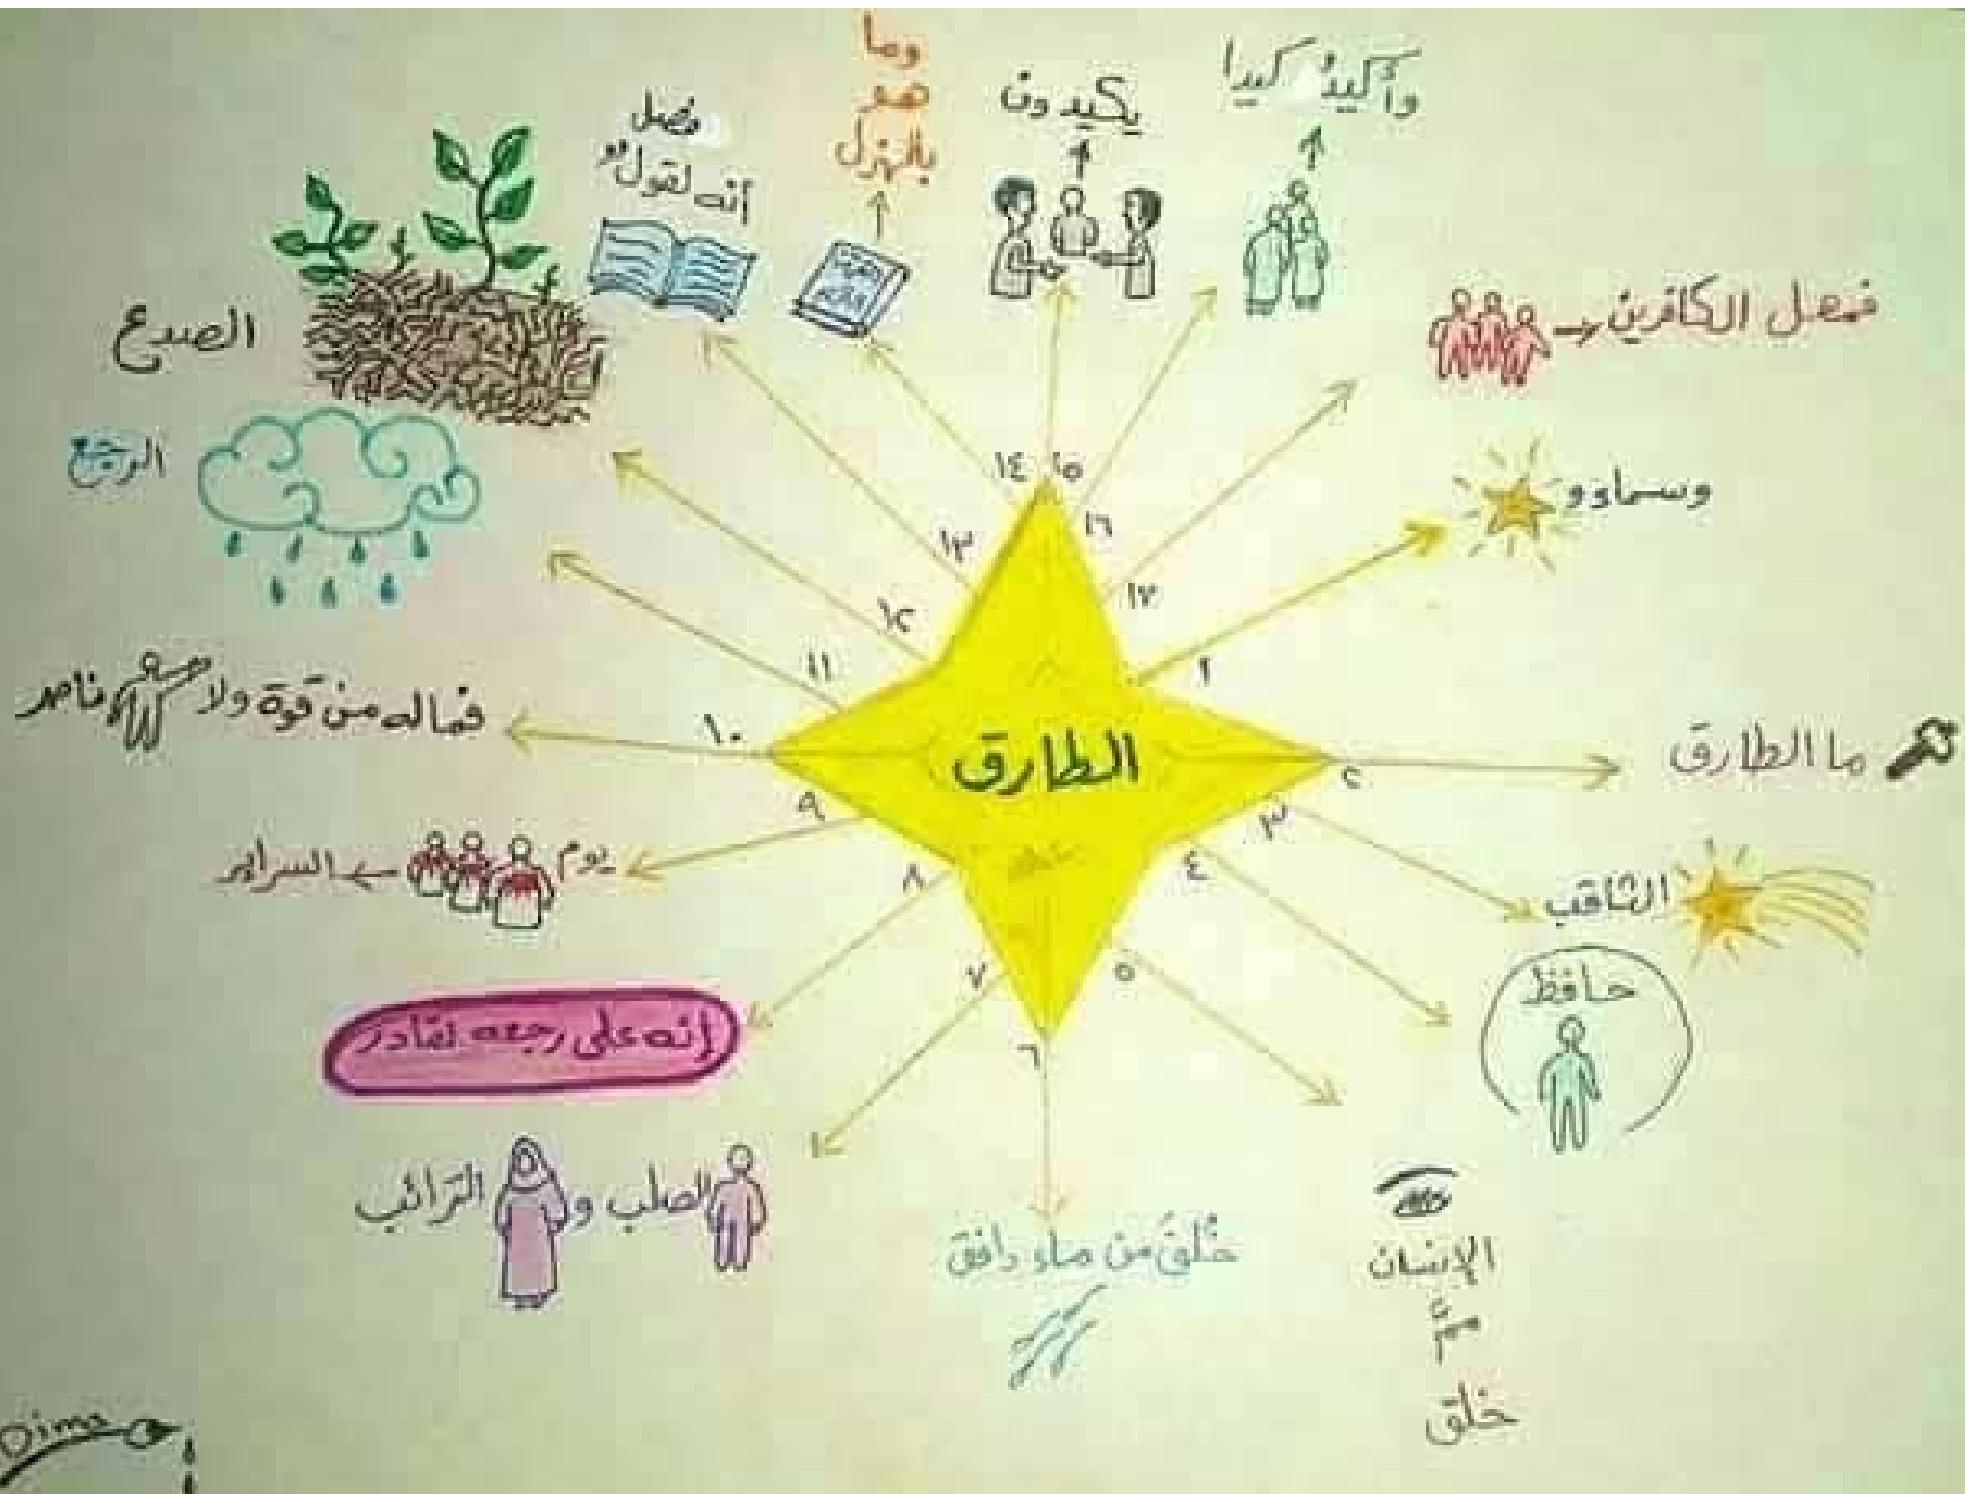 الطارق
١
وسماءو
٢
ما الطارق
٣
الثاقب
٤
حافظ
٥
الإنسان
ممَّ
خلق
٦
خُلق من ماء دافق
٧
الصلب و الترائب
٨
إنه على رجعه لقادر
٩
يوم السراير
١٠
فماله من قوة ولا ناصر
١١
الرجع
١٢
الصدع
١٣
فصل
أنه لقول
١٤
وما
هو
بالهزل
القرآن
الكريم
١٥
يكيدون
١٦
وأكيدُ كيدا
١٧
فمهل الكافرين
Dima